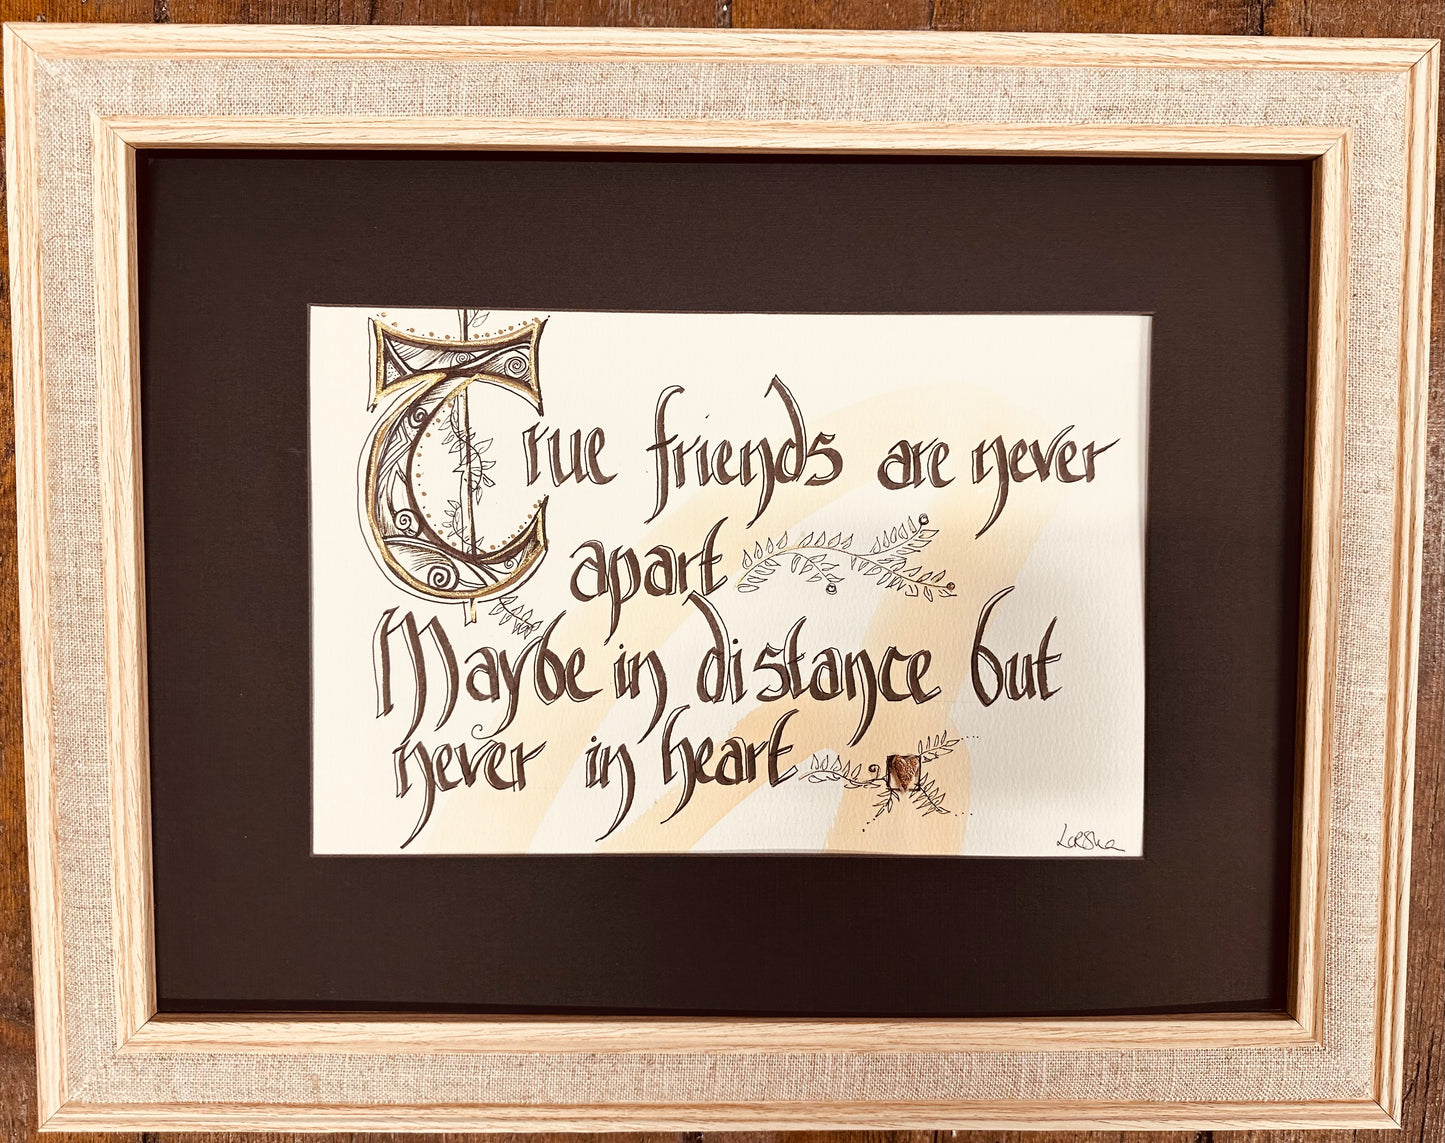 True friends are never
apart
Maybe in distance but
never in heart